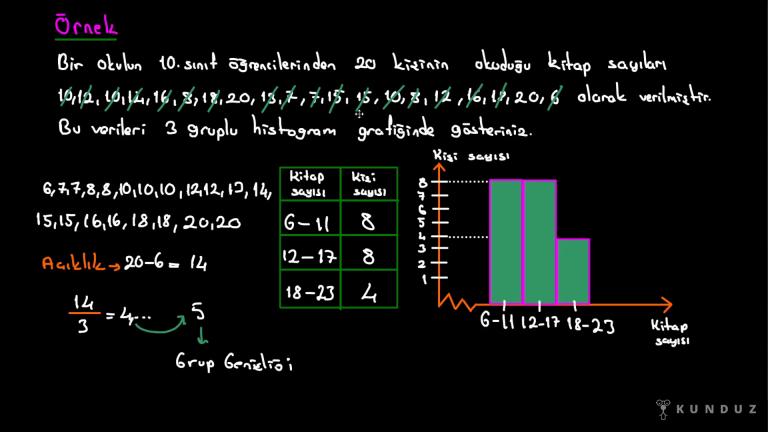 Örnek
Bir okulun 10. sınıf öğrencilerinden 20 kişinin okuduğu kitap sayıları
10, 12, 10, 14, 16, 8, 18, 20, 13, 7, 7, 15, 15, 10, 8, 12, 16, 18, 20, 6 olarak verilmiştir.
Bu verileri 3 gruplu histogram grafiğinde gösteriniz.
6,7,7,8,8,10,10,10,12,12,13,14,
15,15,16,16,18,18,20,20
Açıklık → 20-6 = 14
14
3
= 4,...
5
Grup Genişliği
Kitap sayısı
Kişi sayısı
6-11 8
12-17 8
18-23 4
Kişi sayısı
8
7
6
5
4
3
2
1
6-11 12-17 18-23
Kitap
sayısı
KUNDUZ